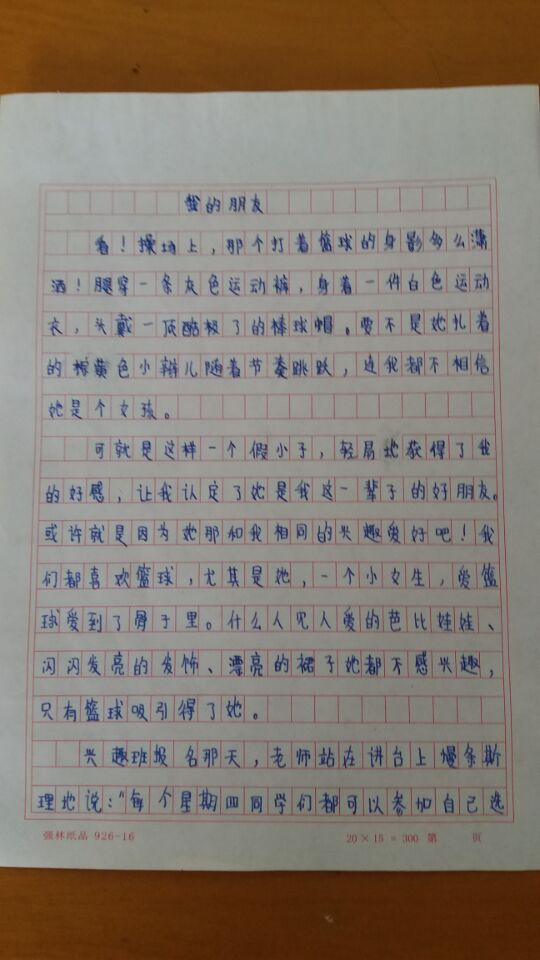 我的朋友
看！操场上，那个打着篮球的身影多么潇
洒！腿穿一条灰色运动裤，身着一件白色运动
衣，头戴一顶酷极了的棒球帽。要不是她扎着
的棕黄色小辫儿随着节奏跳跃，连我都不相信
她是个女孩。
可就是这样一个假小子，轻易地获得了我
的好感，让我认定了她是我这一辈子的好朋友。
或许就是因为她那和我相同的兴趣爱好吧！我
们都喜欢篮球，尤其是她，一个小女生，爱篮
球爱到了骨子里。什么人见人爱的芭比娃娃、
闪闪发亮的发饰、漂亮的裙子她都不感兴趣，
只有篮球吸引得了她。
兴趣班报名那天，老师站在讲台上慢条斯
理地说："每个星期四同学们都可以参加自己选
强林纸品 926-16 20×15=300 第 页